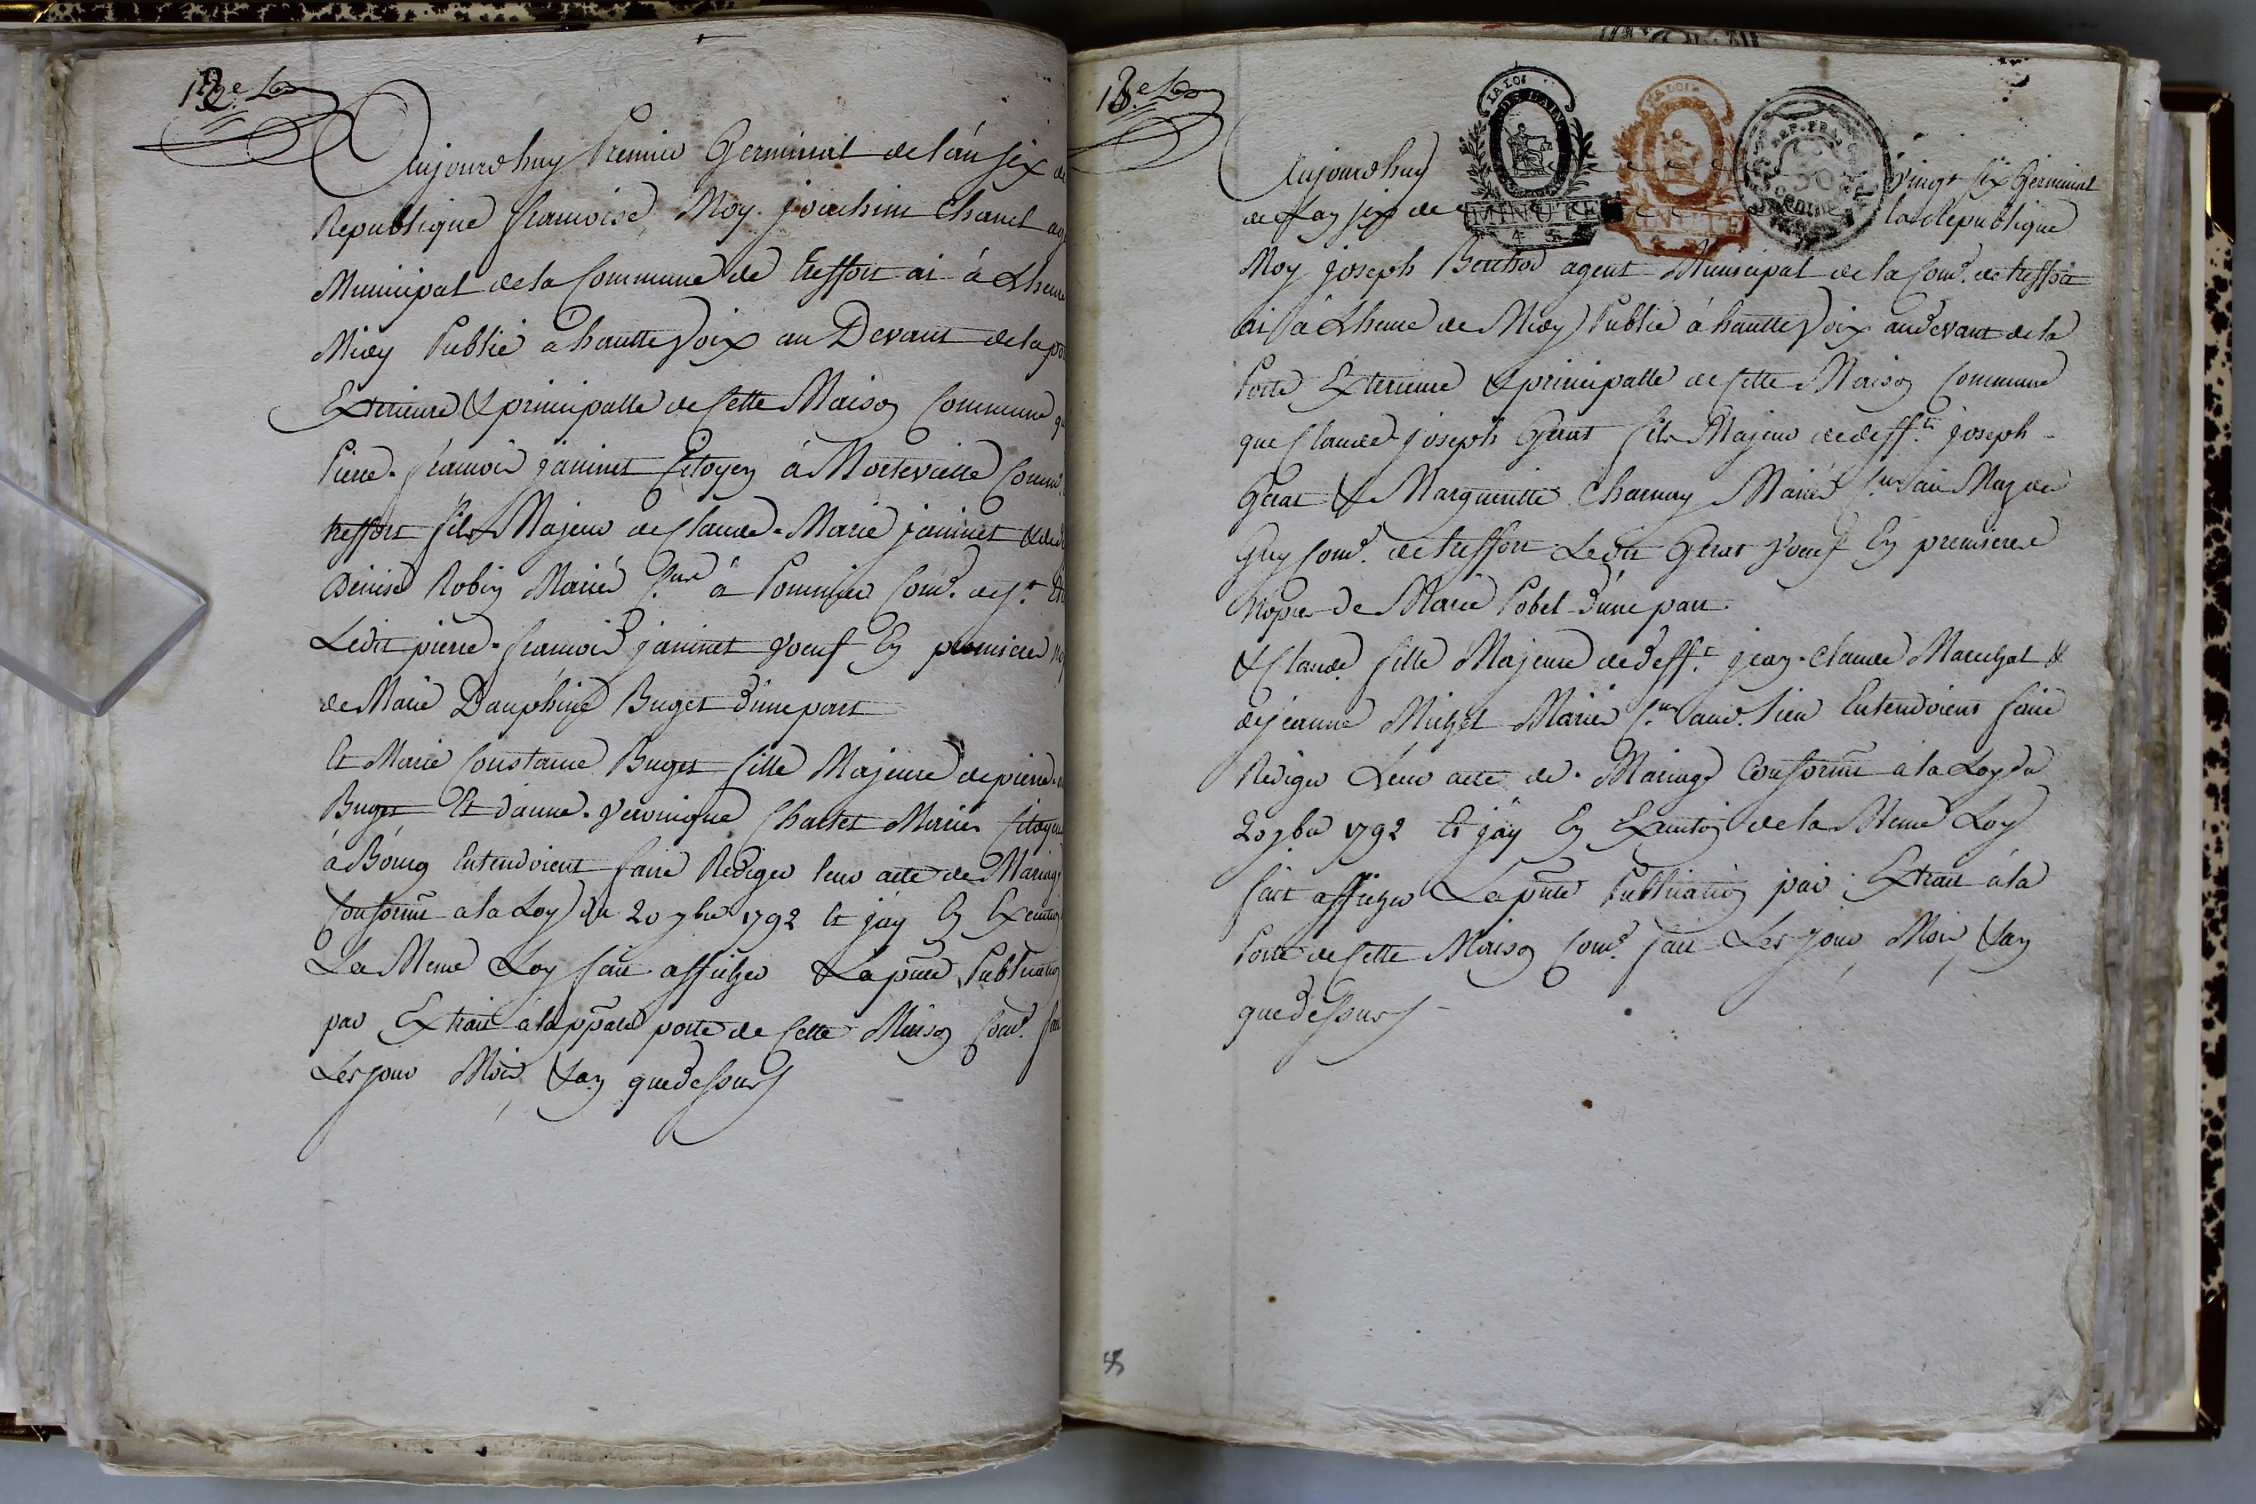 12e
Aujourdhuy Premier Germinal de l'an six de
Republique francoise, Moy joachim Chanel
Municipal de la Commune de treffort ai à Lheure
Midy Publié à hautte Voix au Devant de la
Exterieure & principalle de Cette Maison Commune
Pierre-francois janinet Citoyen à Montevielle Comne
treffort fils Majeur de Claude-Marie janinet
Denise Robin Mariés à Pommier Comne de St
Ledit pierre-francois janinet Voeuf En premiere
de Marie Dauphine Buget d'une part
Et Marie Constance Buget fille Majeure de pierre
Buget Et d'anne-Veronique Charlet Mariés Citoyens
à Bourg Entendoient faire Rediger leur acte de Mariage
Conformt a la Loy du 20 7bre 1792 Et jay En Execution
La Meme Loy fait afficher La pnte Publication
par Extrait à la ppalle porte de Cette Maison Comne
Les jour Mois & an que dessus
13e
LA LOI
LA LOI
REP. FRA
50
centime
MINUTE
MINUTE
Aujourdhuy Vingt six Germinal
de Lan six de la Republique
Moy joseph Bouthod agent Municipal de la Comne de treffort
ai à Lheure de Midy Publié à hautte Voix au devant de la
Porte Exterieure & principalle de Cette Maison Commune
que Claude-joseph Gerat fils Majeur de deffts joseph
Gerat & Margueritte Charnay Mariés au Maz de
Guy Comne de treffort Ledit Gerat Voeuf En premieres
Nopces de Marie Pobel d'une part
& Claude fille Majeure de defft jean-Claude Marechal &
de jeanne Michel Mariés aud. lieu Entendoient faire
Rediger Leur acte de Mariage Conformt a la Loy du
20 7bre 1792 Et jay En Execution de la Meme Loy
fait afficher La pnte Publication par Extrait à la
Porte de Cette Maison Comne fait Les jour, Mois, & an
que dessus